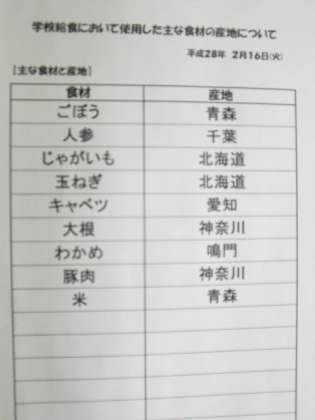 学校給食において使用した主な食材の産地について
平成28年 2月16日(火)
[主な食材と産地]
食材 産地
ごぼう 青森
人参 千葉
じゃがいも 北海道
玉ねぎ 北海道
キャベツ 愛知
大根 神奈川
わかめ 鳴門
豚肉 神奈川
米 青森